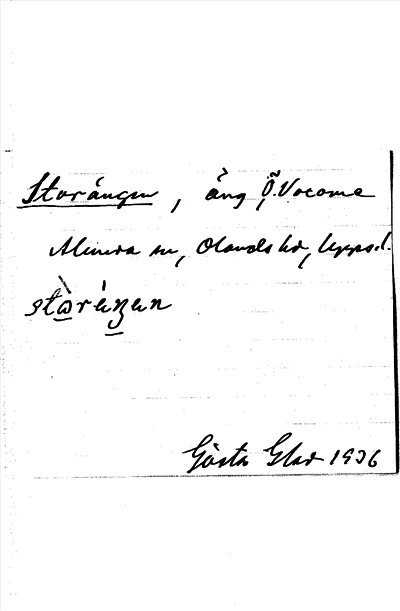 Storängen, äng Ö. Vocome
Almunda sn, Olands hd, Upps. l.
stòràŋen
Gösta Glad 1936